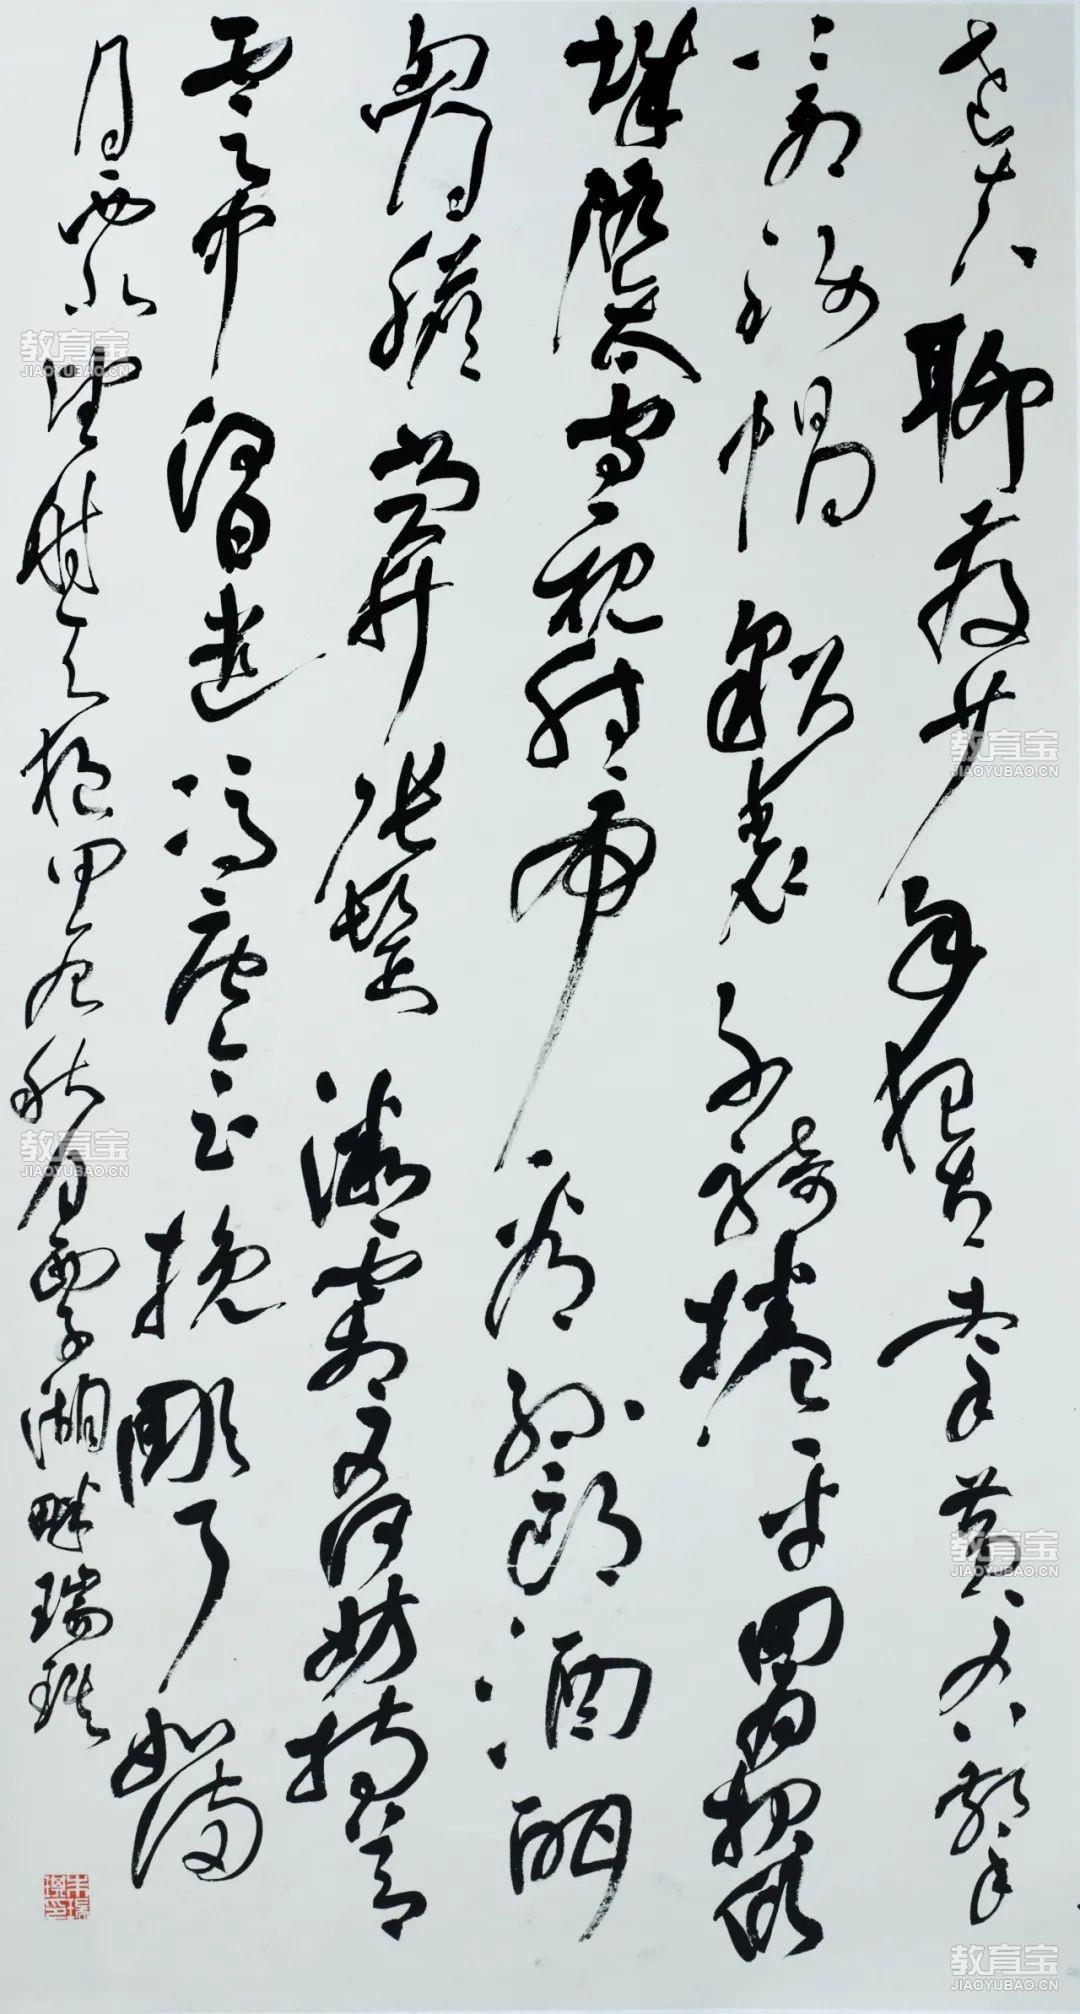 老夫聊發少年狂左牽黃右擎
蒼錦帽貂裘千騎捲平岡為報傾
城隨太守親射虎看孫郎酒酣
胸膽尚開張鬢微霜又何妨持節
雲中何日遣馮唐會挽雕弓如滿
月西北望射天狼甲辰秋月西子湖畔瑞琪
教育宝
JIAOYUBAO.CN
教育宝
JIAOYUBAO.CN
教育宝
JIAOYUBAO.CN
教育宝
JIAOYUBAO.CN
教育宝
JIAOYUBAO.CN